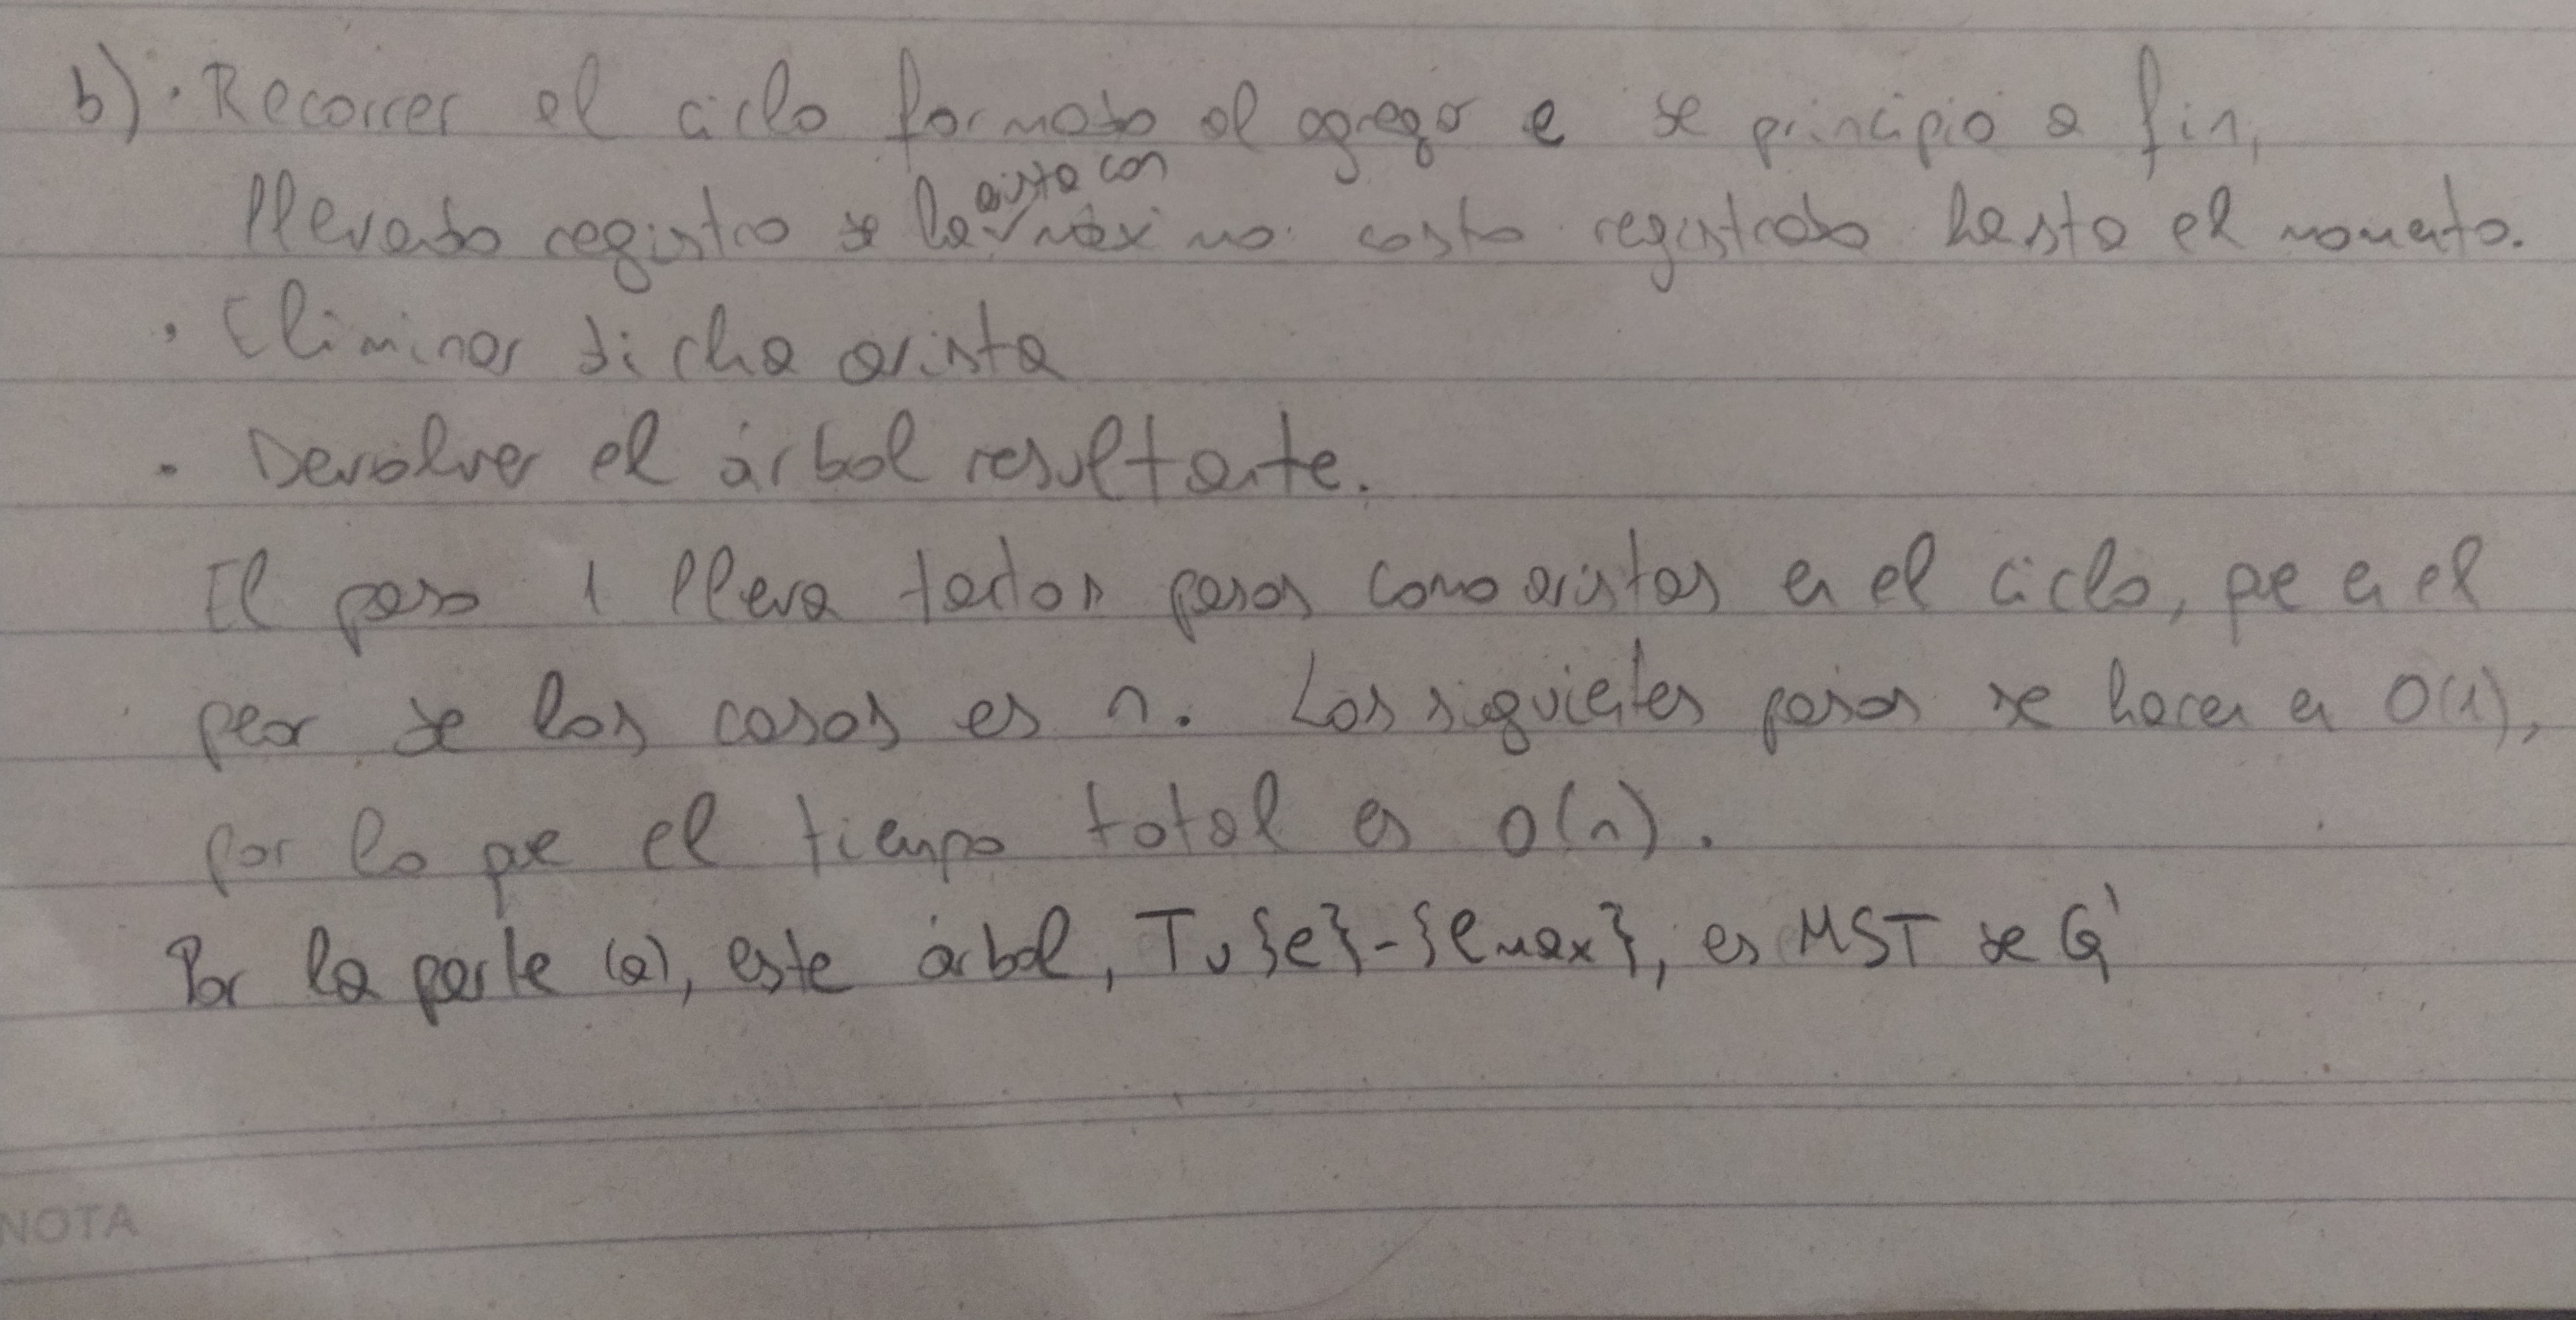 b) · Recorrer el ciclo formado al agregar e de principio a fin,
llevando registro de la arista con máximo costo registrado hasta el momento.
· Eliminar dicha arista
· Devolver el árbol resultante.
El paso 1 lleva tantos pasos como aristas en el ciclo, que en el
peor de los casos es n. Los siguientes pasos se hacen en O(1),
por lo que el tiempo total es O(n).
Por la parte (a), este árbol, T∪{e}-{emax}, es MST de G'
NOTA